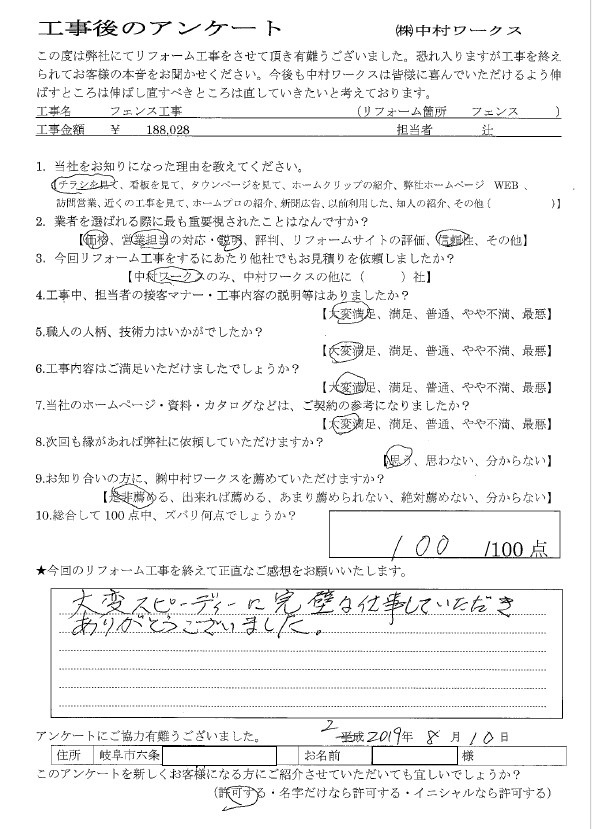 工事後のアンケート ㈱中村ワークス
この度は弊社にてリフォーム工事をさせて頂き有難うございました。恐れ入りますが工事を終え
られてお客様の本音をお聞かせください。今後も中村ワークスは皆様に喜んでいただけるよう伸
ばすところは伸ばし直すべきところは直していきたいと考えております。
工事名 フェンス工事 (リフォーム箇所 フェンス )
工事金額 ¥ 188,028 担当者 辻
1. 当社をお知りになった理由を教えてください。
【チラシを見て、看板を見て、タウンページを見て、ホームクリップの紹介、弊社ホームページ WEB 、
訪問営業、近くの工事を見て、ホームプロの紹介、新聞広告、以前利用した、知人の紹介、その他( )】
2. 業者を選ばれる際に最も重要視されたことはなんですか?
【価格、営業担当の対応・説明、評判、リフォームサイトの評価、信頼性、その他】
3. 今回リフォーム工事をするにあたり他社でもお見積りを依頼しましたか?
【中村ワークスのみ、中村ワークスの他に( )社】
4.工事中、担当者の接客マナー・工事内容の説明等はありましたか?
【大変満足、満足、普通、やや不満、最悪】
5.職人の人柄、技術力はいかがでしたか?
【大変満足、満足、普通、やや不満、最悪】
6.工事内容はご満足いただけましたでしょうか?
【大変満足、満足、普通、やや不満、最悪】
7.当社のホームページ・資料・カタログなどは、ご契約の参考になりましたか?
【大変満足、満足、普通、やや不満、最悪】
8.次回も縁があれば弊社に依頼していただけますか?
【思う、思わない、分からない】
9.お知り合いの方に、㈱中村ワークスを薦めていただけますか?
【是非薦める、出来れば薦める、あまり薦められない、絶対薦めない、分からない】
10.総合して100点中、ズバリ何点でしょうか?
100 /100点
★今回のリフォーム工事を終えて正直なご感想をお願いいたします。
大変スピーディーに完璧な仕事していただき
ありがとうございました。
アンケートにご協力有難うございました。 2 平成2019年 8 月 10 日
住所 岐阜市六条 お名前 様
このアンケートを新しくお客様になる方にご紹介させていただいても宜しいでしょうか?
(許可する・名字だけなら許可する・イニシャルなら許可する)